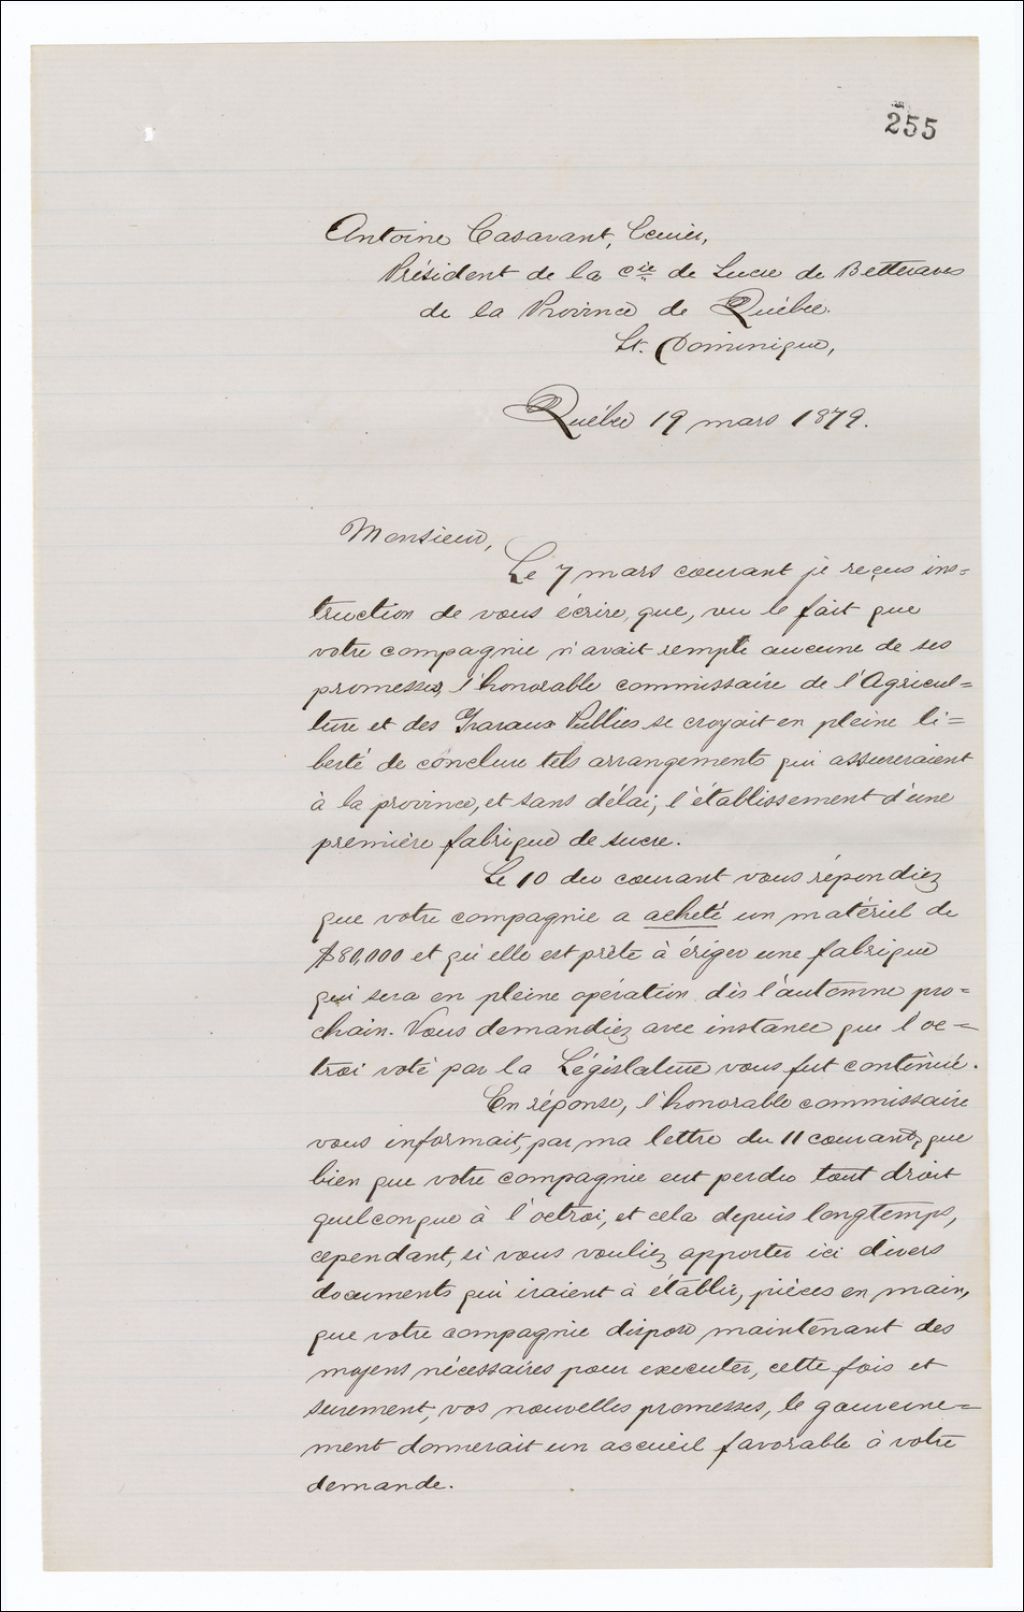 255
Antoine Casavant, Ecuier,
Président de la Cie de Sucre de Betteraves
de la Province de Québec.
St. Dominique,
Québec 19 mars 1879.
Monsieur,
Le 7 mars courant je reçus ins=
truction de vous écrire, que, vu le fait que
votre compagnie n'avait rempli aucune de ses
promesses, l'honorable commissaire de l'Agricul=
ture et des Travaux Publics se croyait en pleine li=
berté de conclure tels arrangements qui assureraient
à la province, et sans délai, l'établissement d'une
première fabrique de sucre.
Le 10 du courant vous répondiez
que votre compagnie a acheté un matériel de
$80,000 et qu'elle est prête à ériger une fabrique
qui sera en pleine opération dès l'automne pro=
chain. Vous demandiez avec instance que l'oc=
troi voté par la Législature vous fut continué.
En réponse, l'honorable commissaire
vous informait, par ma lettre du 11 courant, que
bien que votre compagnie eut perdu tout droit
quelconque à l'octroi, et cela depuis longtemps,
cependant, si vous vouliez apporter ici divers
documents qui iraient à établir, pièces en main,
que votre compagnie dispose maintenant des
moyens nécessaires pour executer, cette fois et
surement, vos nouvelles promesses, le gouverne=
ment donnerait un accueil favorable à votre
demande.